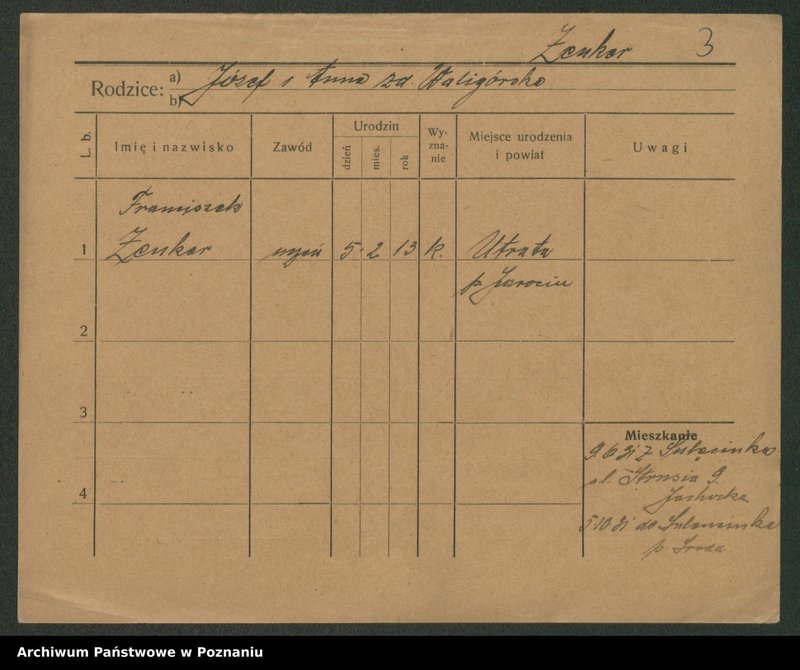 Zenker 3
Rodzice: a) Józef i Anna zd. Waligórska
b)
L. b. Imię i nazwisko Zawód Urodzin dzień mies. rok Wy-zna-nie Miejsce urodzenia i powiat Uwagi
Franciszek
1 Zenker uczeń 5. 2 13 k. Utrata
p. Jarocin
2
3
Mieszkanie
9.6 31 z Sulęcinka
ul. Strusia 9.
4
5.10.31 do Sulęcinka
p. Środa.
Archiwum Państwowe w Poznaniu